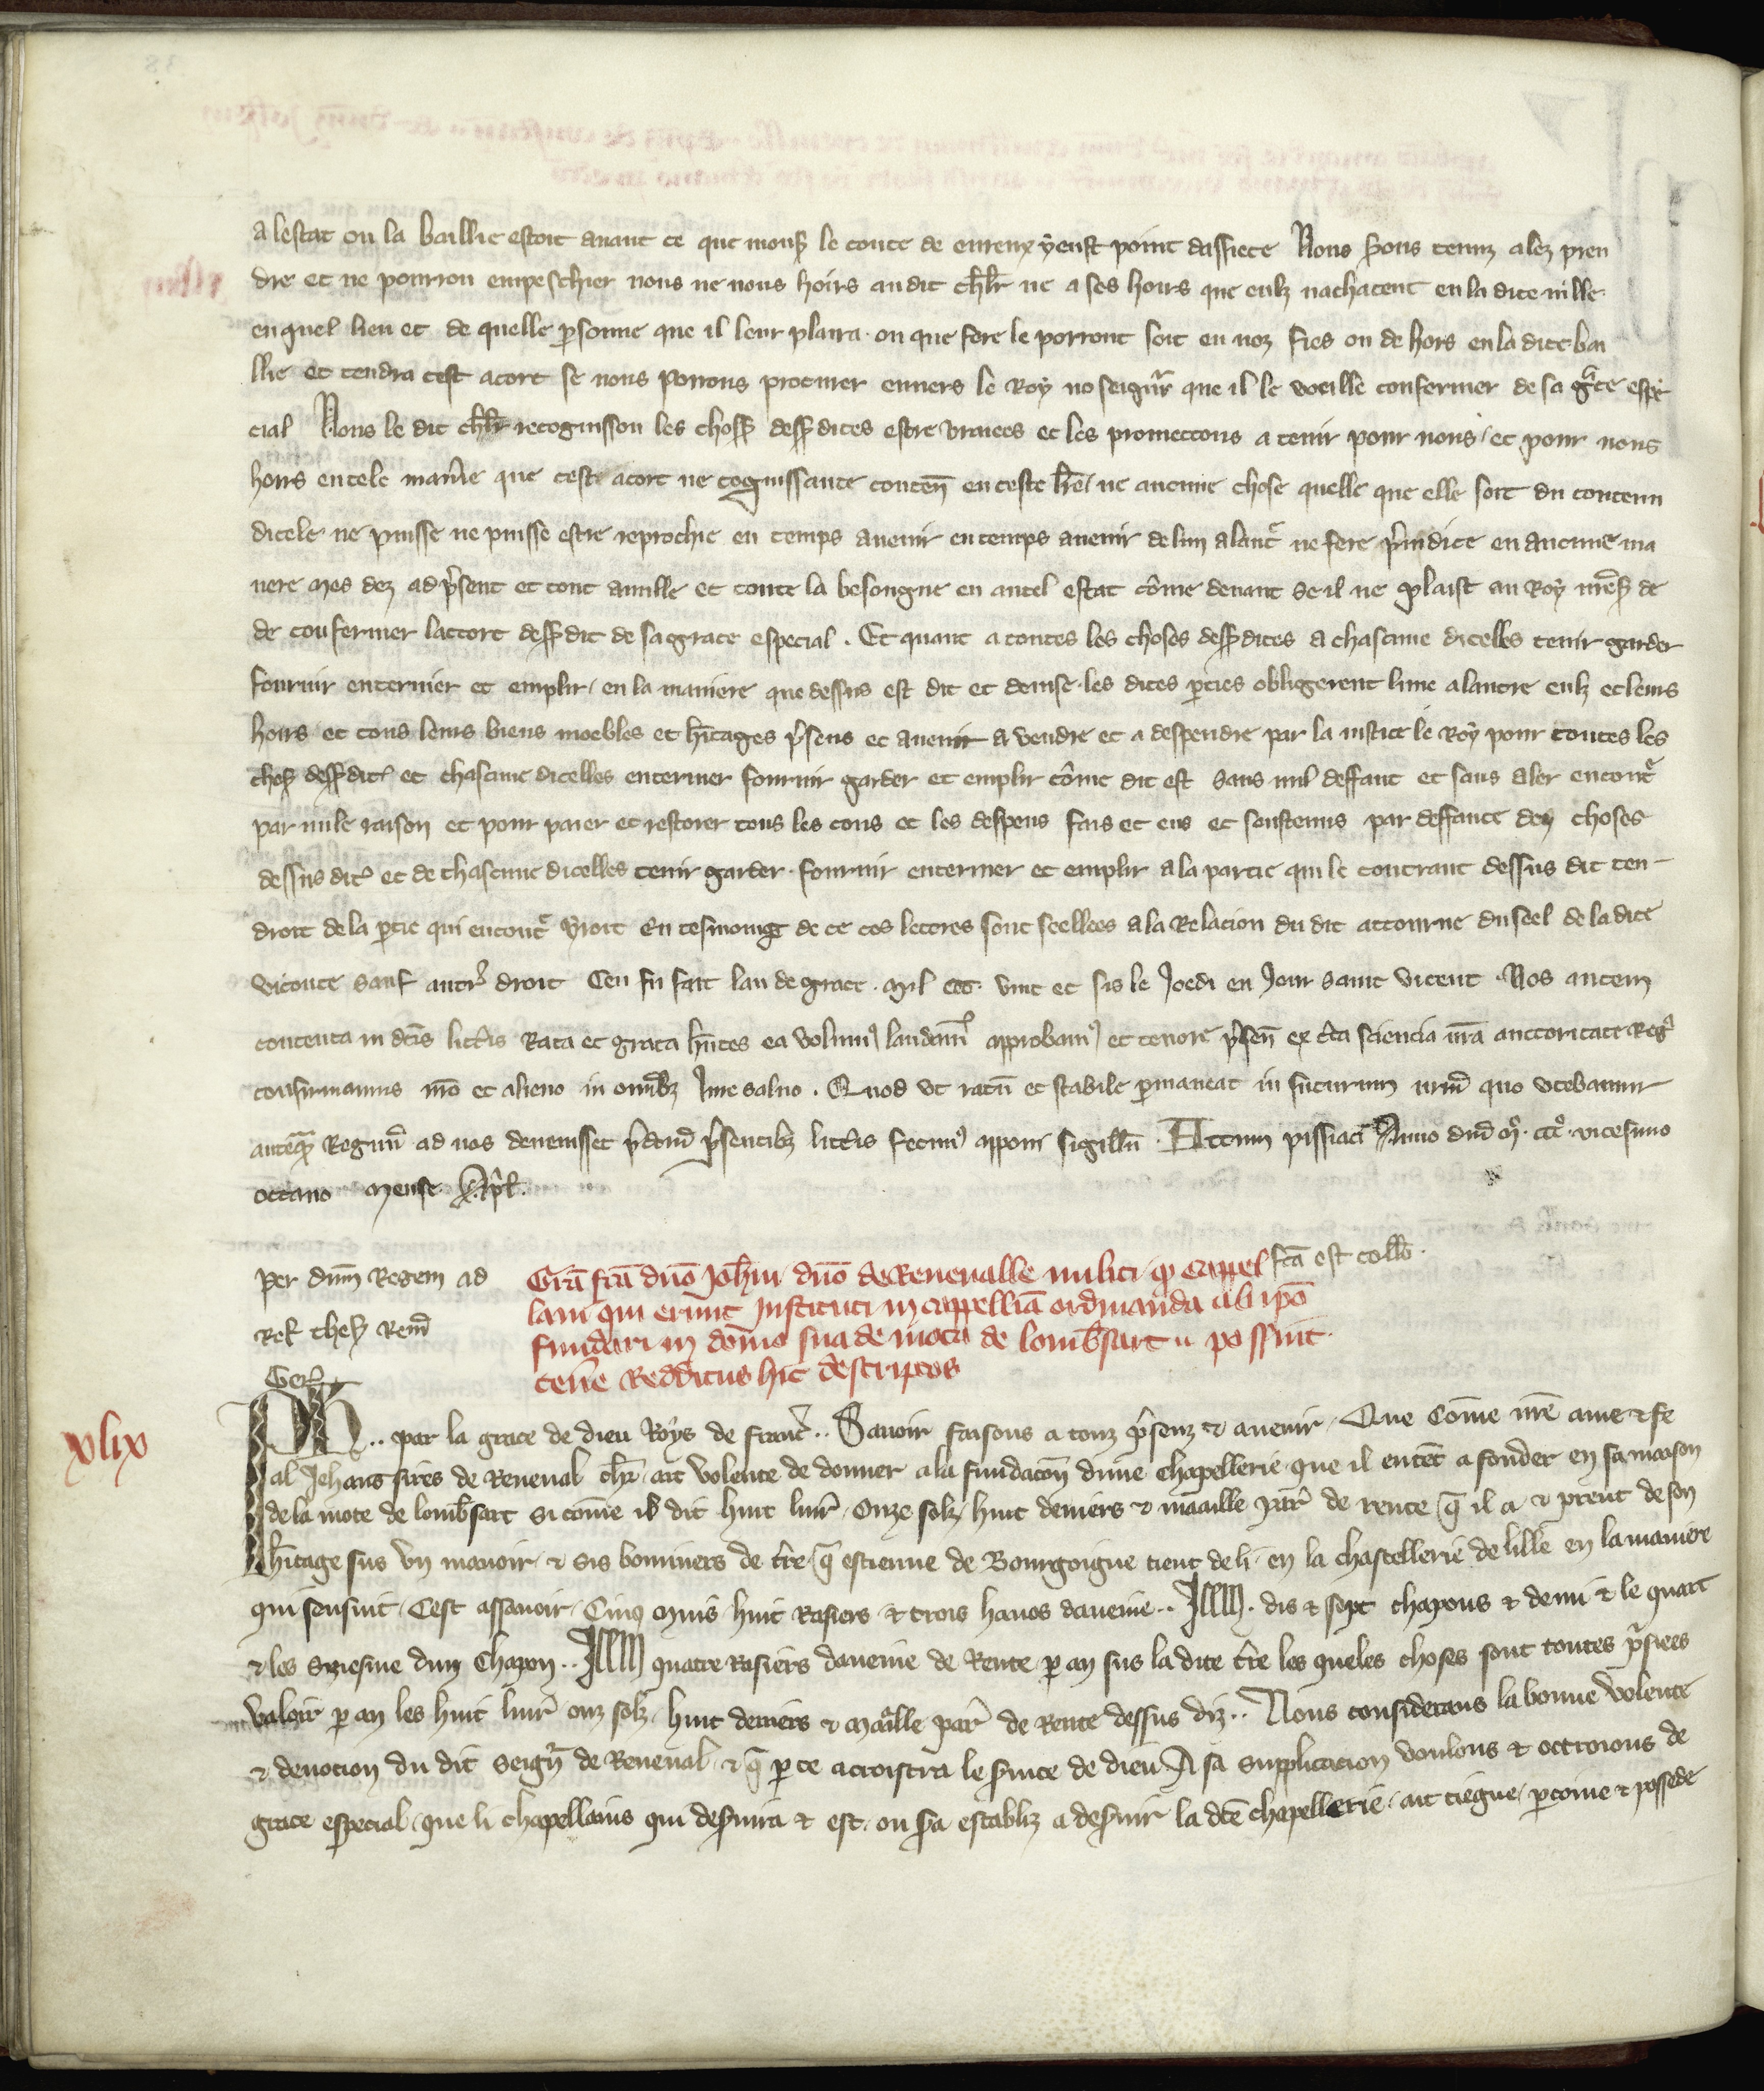 a lestat ou la baillie estoit avant ce que mons̃ le conte de evreux y eust point dassiete Nous sõns tenuz alez pren
dre et ne pourron empeschier nous ne nous hoirs au dit chl̃r ne a ses hoirs que eulz nachatent en la dite ville
en quel lieu et de quelle p̱sonne que il leur plaira . ou que fere le porront soit en noz fies ou de hors en la dite bai
llie et tendra cest acort se nous povons procurer envers le Roy no seign̄r que il le voeille confermer de sa gr̃ce espe
cial Nous le dit chl̃r recognisson les chos̃ dess̃dites estre vraiees et les promettons a tenir pour nous et pour nous
hoirs en tele manĩe que cest acort ne cognissance conteñ en ceste lrẽ ne aucune chose quelle que elle soit du contenu
dicele ne puisse ne puisse estre reprochie en temps avenir en temps avenir de lun a lautr̃ ne fere p̃iudice en aucune ma
nere mes dez ad p̃sent et tout anulle et toute la besongne en autel estat cõme devant se il ne plaist au Roy nres̃ de
de confermer lattort dess̃dit de sa grace especial . Et quant a toutes les choses dess̃dites a chascune dicelles tenir garder
fournir enteriner et emplir en la maniere que dessus est dit et devise les dites p̱ties obligerent lune a lautre eulz et leurs
hoirs et tous leurs biens moebles et hr̃itages p̃sens et avenir a vendre et a despendre par la iustice le Roy pour toutes les
chos̃ dess̃dit̃ et chascune dicelles enteriner fournir garder et emplir cõme dit est sans nul deffaut et sans aler encontr̃
par nule raison et pour paier et restorer tous les cous et les despens fais et eus et soustenus par deffaute dez choses
dessus dit̃ et de chascune dicelles tenir garder . fournir enteriner et emplir a la partie qui le contraut dessus dit ten-
droit de la p̱tie qui encontr̃ vroit En tesmoing de ce ces lettres sont seellees a la Relacion du dit attourne du seel de la dite
viconte sauf autr̃ droit Cen fu fait lan de grace . mil ccc . vint et sis le Joedi en jour saint vicent . Nos autem
contenta in dc̃is litt̃is Rata et grata hñtes ea volum̃ laudam̃ approbam̃ et tenore p̃señ ex c̃ta sciencia nr̃a auctoritate Reg̃
confirmamus nr̃o et alieno in om̃ibz Jure salvo . Quod ut ratũ et stabile p̱maneat in futurum nrm̃ quo utebamur
anteq̃ Regnũ ad nos devenisset p̃dictm̃ p̃sentibz litt̃is fecim̃ apponi sigillũ . Actum pissiaci Anno dñi mͦ. cccͦ. vicesimo
octavo mense Apr̃l .
per dñm Regem ad
Rel̃ thes̃ Rem̃
Ger̃
fc̃a est coll̃o .
Grã fc̃a dño Joh̃ni dño de Renevalle militi q̱ cappel
lani qui erunt Instituti in cappelliã ordinanda ab ip̃o
fundari in domo sua de mota de lomb̃sart u possint
tenẽ Redditus hic descriptos
xlix
Ph . . par la grace de dieu Roys de franc̃ . . Savoir faisons a touz p̃senz ⁊ avenir . Que Cõme nr̃e ame ⁊ fe
al Jehans sires de Reneval chl̃r ait volente de donner a la fundacõn dune chapellerie que il entẽt a fonder en sa maison
de la mote de lomb̃sart si cõme il dit huit livr̃ . Onze solz . huit deniers ⁊ maaille par̃ de rente q̃ il a ⁊ prent de son
hr̃itage sus un manoir ⁊ sis bonniers de tr̃e q̃ estienne de Bourgoigne tient de li en la chastellerie de lille en la maniere
qui sensuit . Cest assavoir . Cinq muis huit Rasiers ⁊ trois havos daveine . . Item . dis ⁊ sept chapons ⁊ demi ⁊ le quart
⁊ les siziesme dun chapon . . Item quatre Rasiers daveine de Rente p̱ an sus la dite tr̃e les queles choses sont toutes p̃siees
valoir p̱ an les huit livr̃ onz solz . huit deniers ⁊ maaille par̃ de Rente dessus diz . . Nous considerans la bonne volente
⁊ devocion du dit seign̄r de Reneval ⁊ q̃ p̱ ce acroistra le s̃vice de dieu A sa supplicacion voulons ⁊ octroions de
grace especial que li chapellains qui des̃vira ⁊ est . ou s̃a establiz a des̃vir la dc̃e chapellerie . ait tiegne p̱coive ⁊ possede